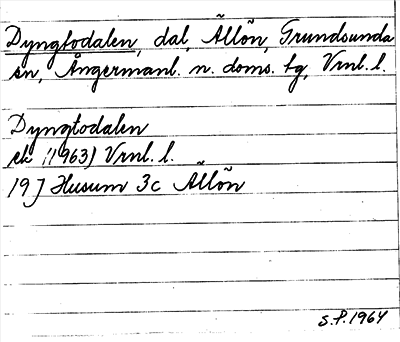 Dyngtodalen, dal, Ällön, Grundsunda
sn, Ångermanl. n. doms. tg, Vrnl. l.
Dyngtodalen
ek (1963) Vrnl. l.
19 J Husum 3c Ällön
S.P. 1964